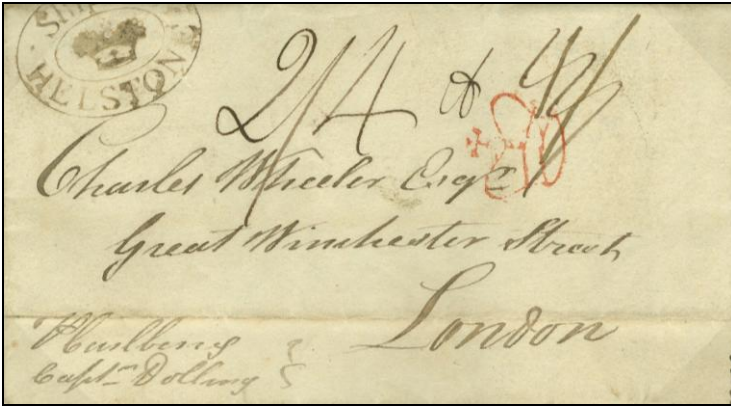 Ship
HELSTONE
2/4 &
Charles Wheeler Esqr
Great Winchester Street
London
Captn Dolling